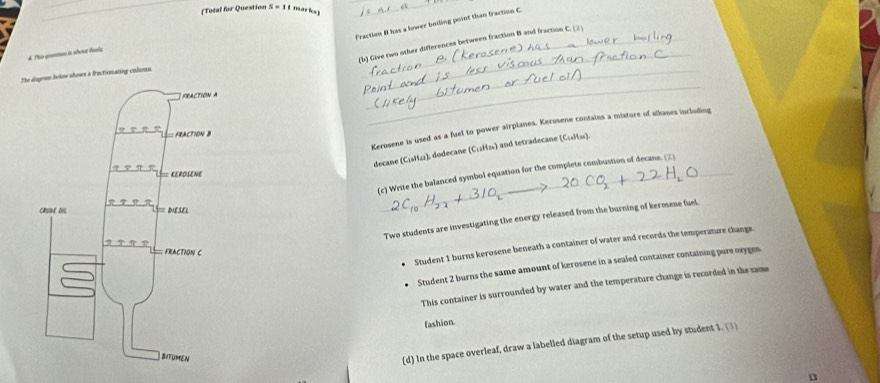 (Total for Question 5 = 11 marks)
4. This question is about fuels.
The diagram below shows a fractionating column
FRACTION A
FRACTION B
KEROSENE
DIESEL
CRUDE OIL
FRACTION C
BITUMEN
is at a
Fraction B has a lower boiling point than fraction C.
(b) Give two other differences between fraction B and fraction C. (2)
fraction B (kerosene) has a lower boiling
point and is less viscous than fraction C
(likely bitumen or fuel oil)
Kerosene is used as a fuel to power airplanes. Kerosene contains a mixture of alkanes including
decane (C₁₀H₂₂), dodecane (C₁₂H₂₆) and tetradecane (C₁₄H₃₀).
(c) Write the balanced symbol equation for the complete combustion of decane. (2)
2C₁₀H₂₂ + 31O₂ → 20 CO₂ + 22 H₂O
Two students are investigating the energy released from the burning of kerosene fuel.
• Student 1 burns kerosene beneath a container of water and records the temperature change.
• Student 2 burns the same amount of kerosene in a sealed container containing pure oxygen.
This container is surrounded by water and the temperature change is recorded in the same
fashion.
(d) In the space overleaf, draw a labelled diagram of the setup used by student 1. (3)
13